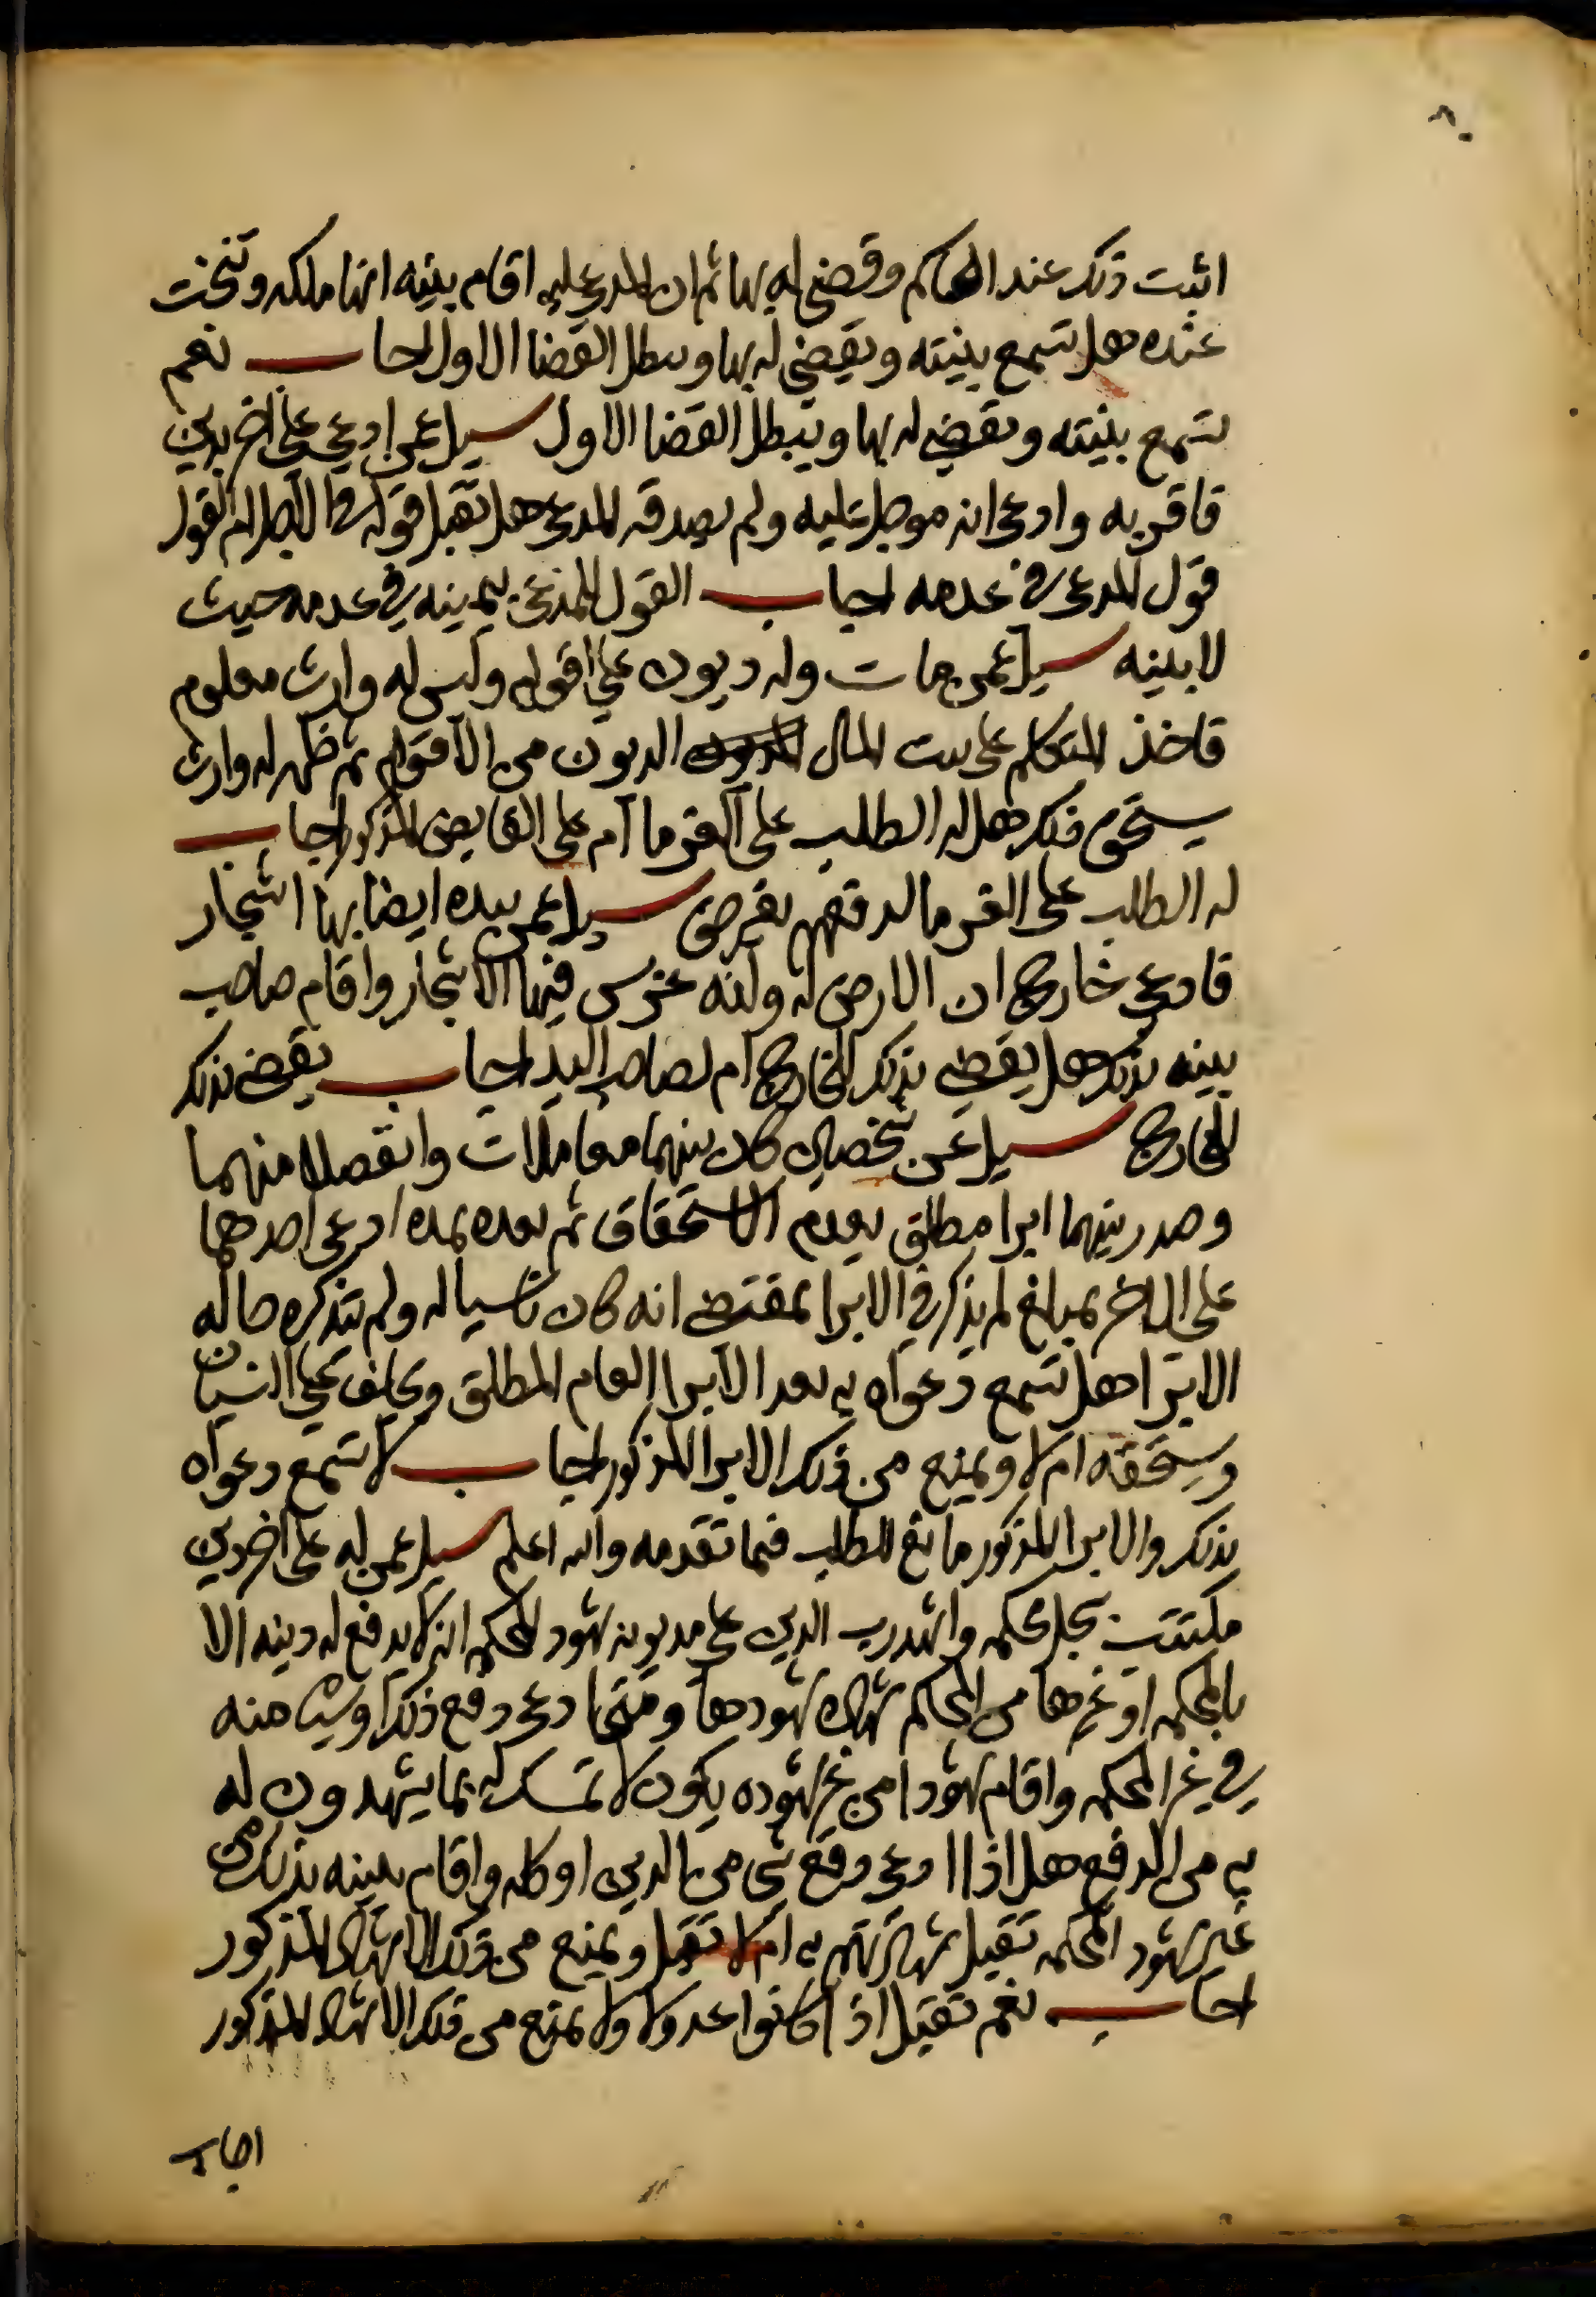 ٨٠
اثبت ذلك عند الحاكم وقضى له بها ثم ان المدعى عليه اقام بينه انها ملكه ونتجت
عنده هل تسمع بينته ويقضى له بها ويبطل القضا الاول اجاب نعم
تسمع بينته ويقضى له بها ويبطل القضا الاول سيل عمن ادعى على اخر بدين
فاقر به وادعى انه موجل عليه ولم يصدقه المدعى هل يقبل قوله في الاجل ام القول
قول المدعى في عدمه اجاب القول للمدعى بيمينه في عدمه حيث
لا بينه سيل عمن مات وله ديون على اقوام وليس له وارث معلوم
فاخذ المتكلم على بيت المال الديون من الاقوام ثم ظهر له وارث
يستحق ذلك هل له الطلب على الغرما ام على القابض المذكور اجاب
له الطلب على الغرما لدفعهم بغير حق سيل عمن بيده ارض بها اشجار
فادعى خارج ان الارض له وانه غرس فيها الاشجار واقام صاحب
بينه بذلك هل يقضى بذلك للخارج ام لصاحب اليد اجاب يقضى بذلك
للخارج سيل عن شخصين كان بينهما معاملات وانفصلا منهما
وصدر بينهما ابرا مطلق بعدم الاستحقاق ثم بعده بمده ادعى احدهما
على الاخر بمبلغ لم يذكر في الابرا بمقتضى انه كان ناسيا له ولم يتذكره حاله
الابرا هل تسمع دعواه به بعد الابرا العام المطلق ويحلف على النسيان
ويستحقه ام لا ويمنع من ذلك الابرا المذكور اجاب لا تسمع دعواه
بذلك والابرا المذكور مانع للطلب فيما تقدمه والله اعلم سيل عمن له على اخر دين
مكتتب بسجل محكمه واشهد رب الدين على مديونه شهود المحكمه انه لا يدفع له دينه الا
بالمحكمه او غيرها من المحاكم بشهاده شهودها ومتى ادعى دفع ذلك او شيا منه
في غير المحكمه واقام شهودا من غير شهوده يكون لا تمسك له بما يشهدون له
به من الدفع هل اذا ادعى دفع شي من الدين او كله واقام بينه بذلك من
غير شهود المحكمه تقبل شهادتهم به ام لا تقبل ويمنع من ذلك الاشهاد المذكور
اجاب نعم تقبل اذا كانوا عدولا ولا يمنع من ذلك الاشهاد المذكور
اجاب